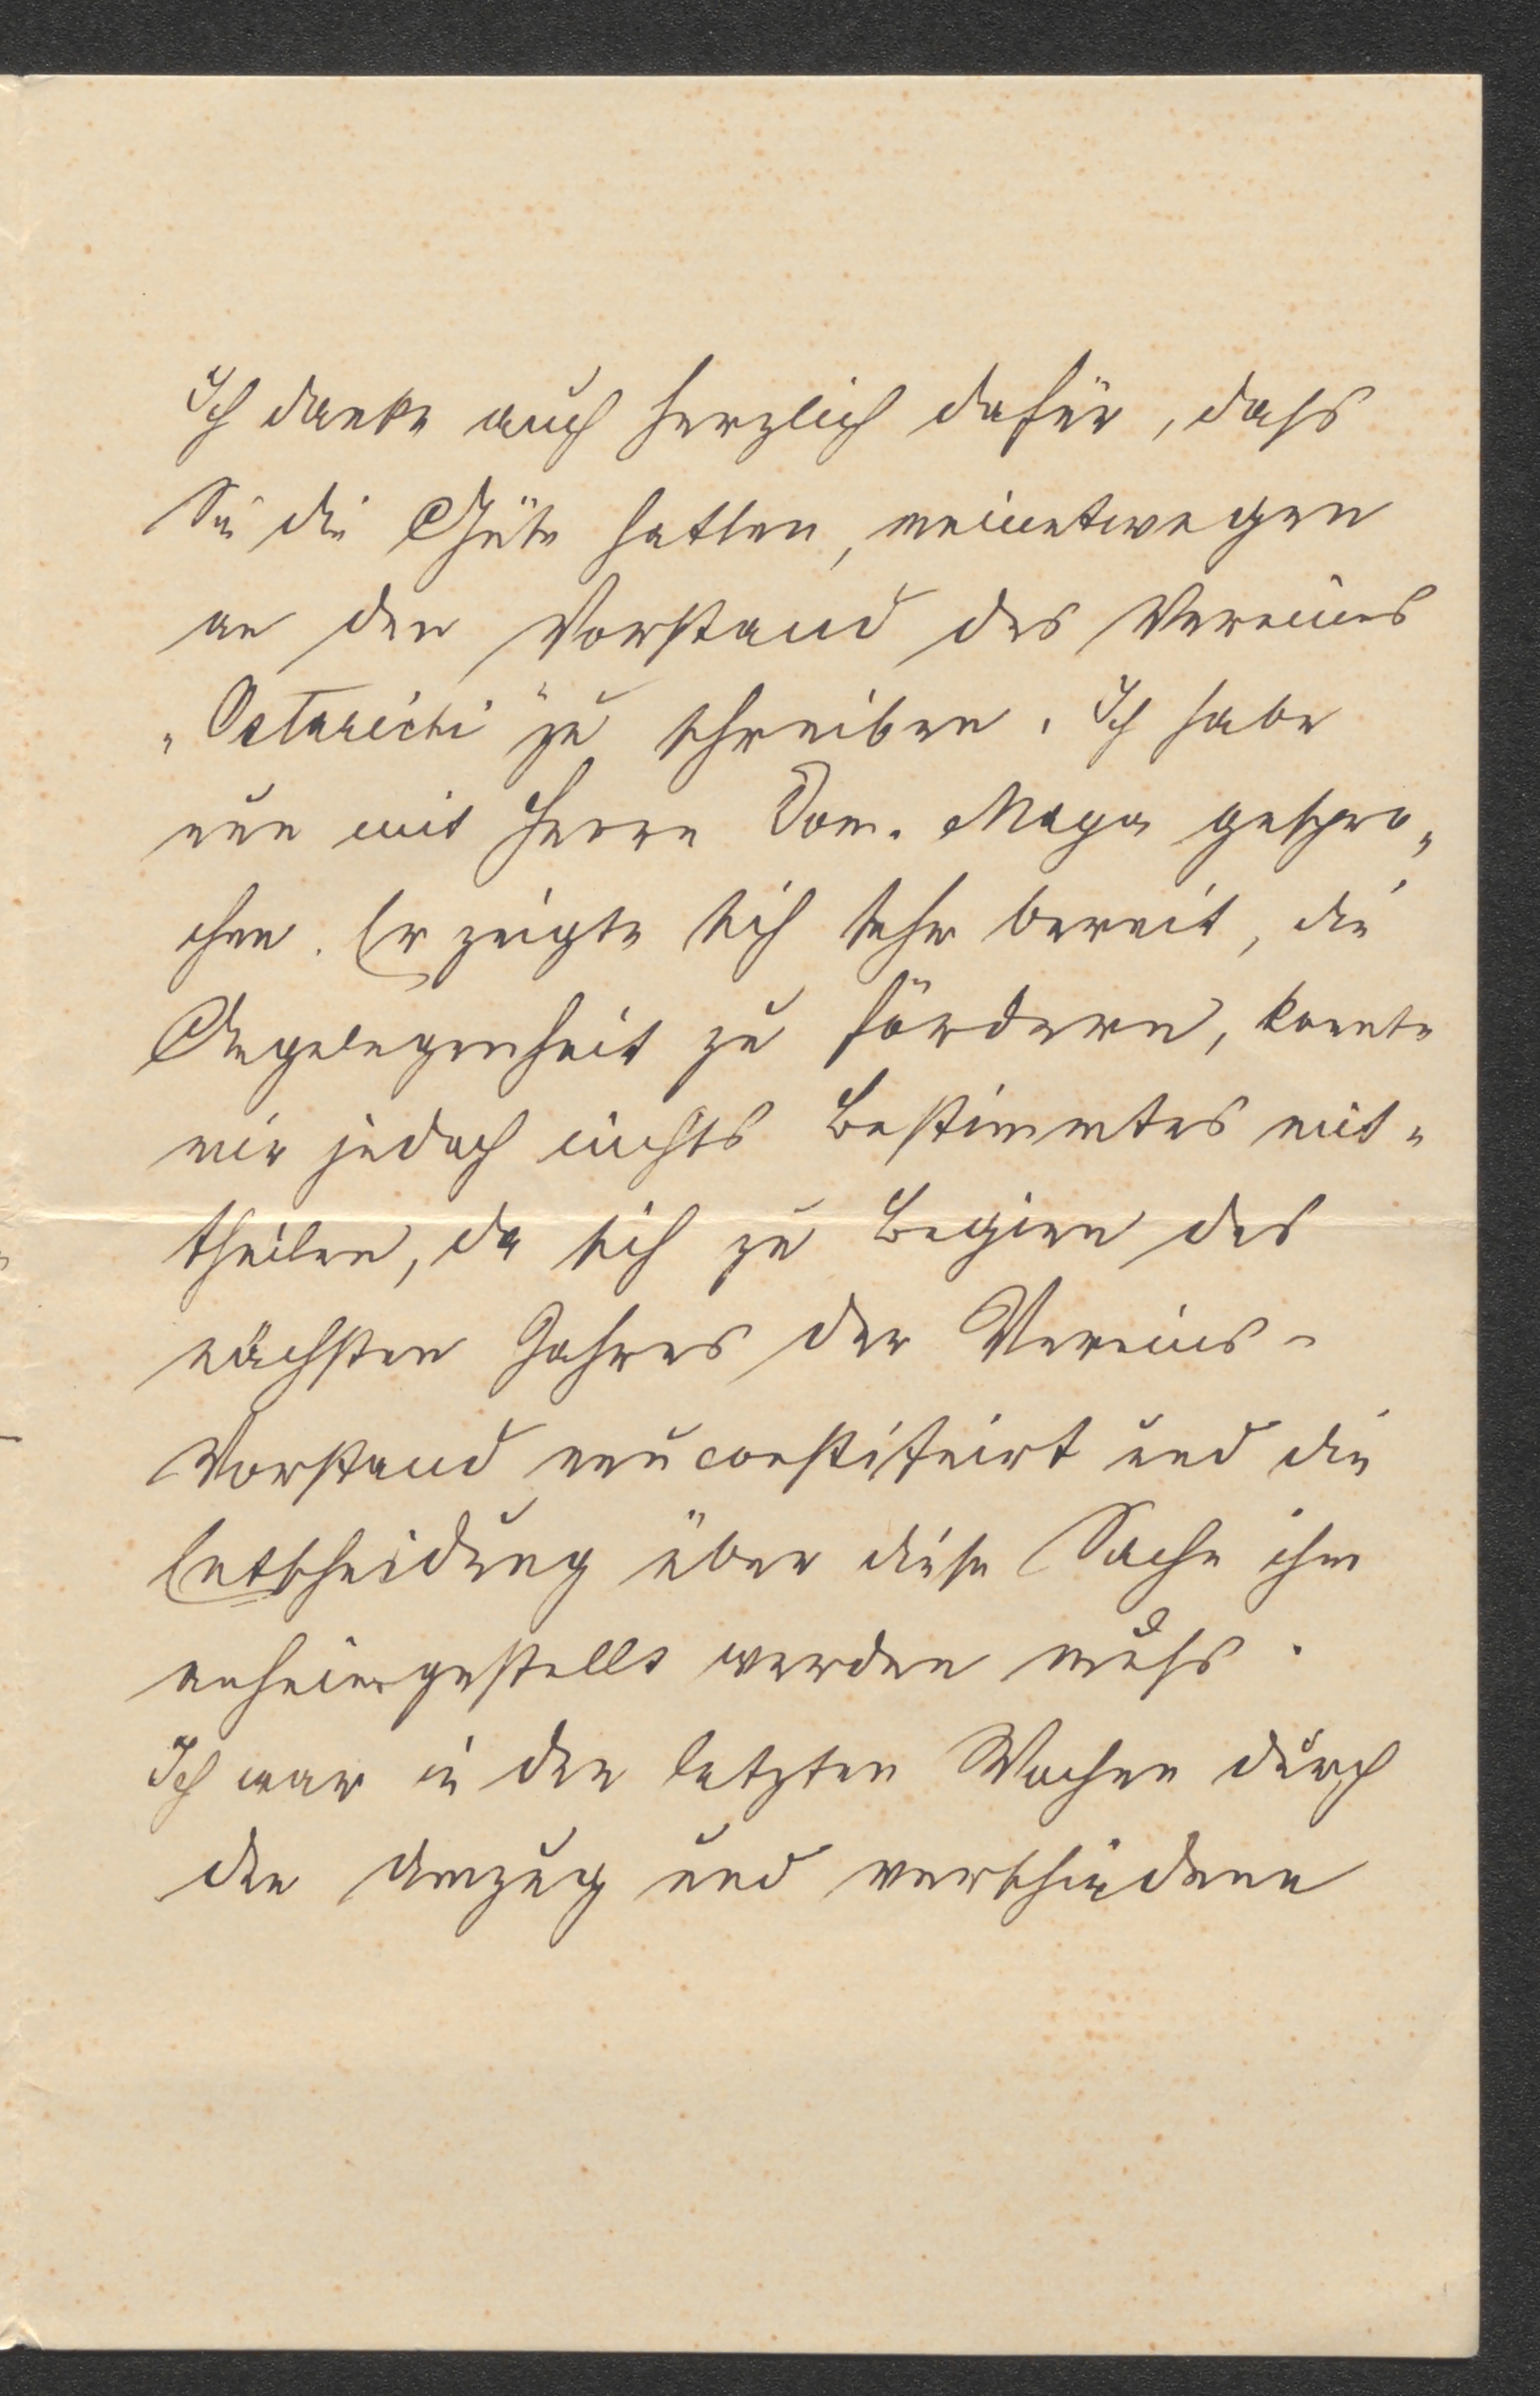 Ich danke auch herzlich dafür, dass
Sie die Güte hatten, meinetwegen
an den Vorstand des Vereines
„Ostarichi" zu schreiben. Ich habe
nun mit Herrn Dom. gespro„
chen. Er zeigte sich sehr bereit, die
Angelegenheit zu fördern, konnte
mir jedoch nichts Bestimmtes mit„
theilen, da sich zu Beginn des
nächsten Jahres der Vereins-
Vorstand neuconstituirt und die
Entscheidung über diese Sache ihm
anheimgestellt werden muss.
Ich war in den letzten Wochen durch
den Umzug und verschiedene